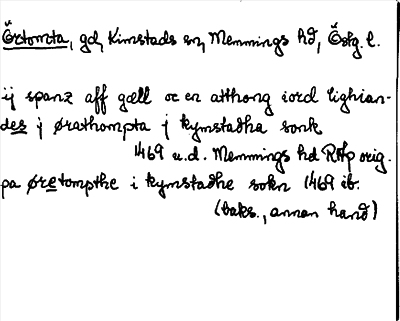 Örtomta, gd, Kimstads sn, Memmings hd, Östg. l.
ij spanz aff gœll oc en atthong iord lighian-
des j ørathompta j kymstadha sonk
1469 u.d. Memmings hd RAp orig.
pa øretompthe i kymstadhe sokn 1469 ib.
(baks., annan hand)